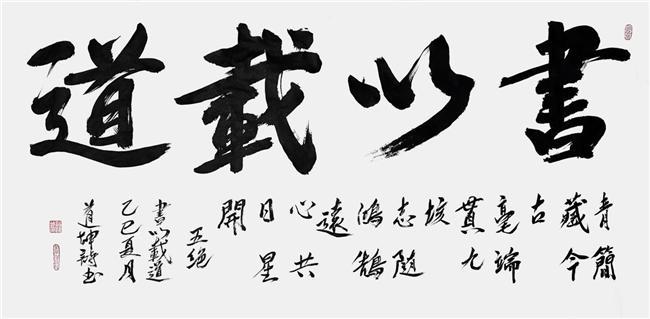 書以載道
青簡
藏今
古
毫端
貫九
垓
志隨
鴻鵠
遠
心共
日星
開
五绝
書以載道
乙巳夏月
道坤詩书